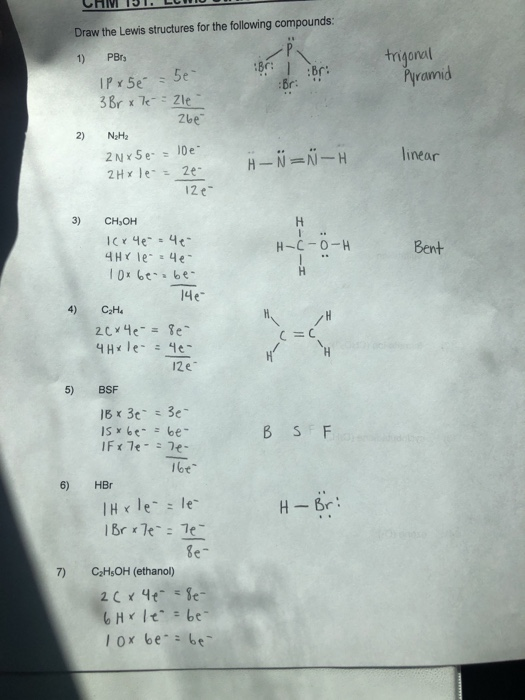 Draw the Lewis structures for the following compounds:
1) PBr₃
1P x 5e⁻ = 5e⁻
3Br x 7e⁻ = 21e⁻
26e⁻
P
:Br: :Br: :Br:
trigonal
Pyramid
2) N₂H₂
2N x 5e⁻ = 10e⁻
2H x 1e⁻ = 2e⁻
12e⁻
H — N = N — H
linear
3) CH₃OH
1C x 4e⁻ = 4e⁻
4H x 1e⁻ = 4e⁻
1O x 6e⁻ = 6e⁻
14e⁻
H
H - C - O - H
H
Bent
4) C₂H₄
2C x 4e⁻ = 8e⁻
4H x 1e⁻ = 4e⁻
12e⁻
H H
C = C
H H
5) BSF
1B x 3e⁻ = 3e⁻
1S x 6e⁻ = 6e⁻
1F x 7e⁻ = 7e⁻
16e⁻
B S F
6) HBr
1H x 1e⁻ = 1e⁻
1Br x 7e⁻ = 7e⁻
8e⁻
H — Br:
7) C₂H₅OH (ethanol)
2C x 4e⁻ = 8e⁻
6H x 1e⁻ = 6e⁻
1O x 6e⁻ = 6e⁻